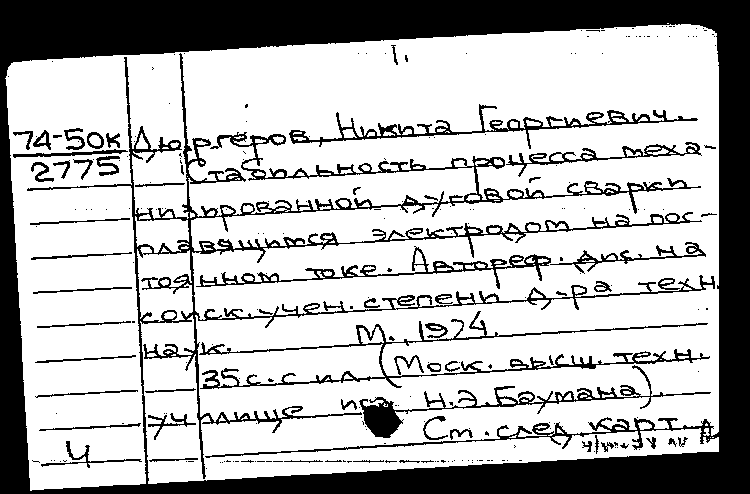 1.
74-50к Дюргеров, Никита Георгиевич.
2775 Стабильность процесса меха-
низированной дуговой сварки
плавящимся электродом на пос-
тоянном токе. Автореф. дис. на
соиск. учен. степени д-ра техн.
наук. М., 1974.
35 с. с ил. (Моск. высш. техн.
училище им. Н.Э. Баумана).
Ч См. след. карт.